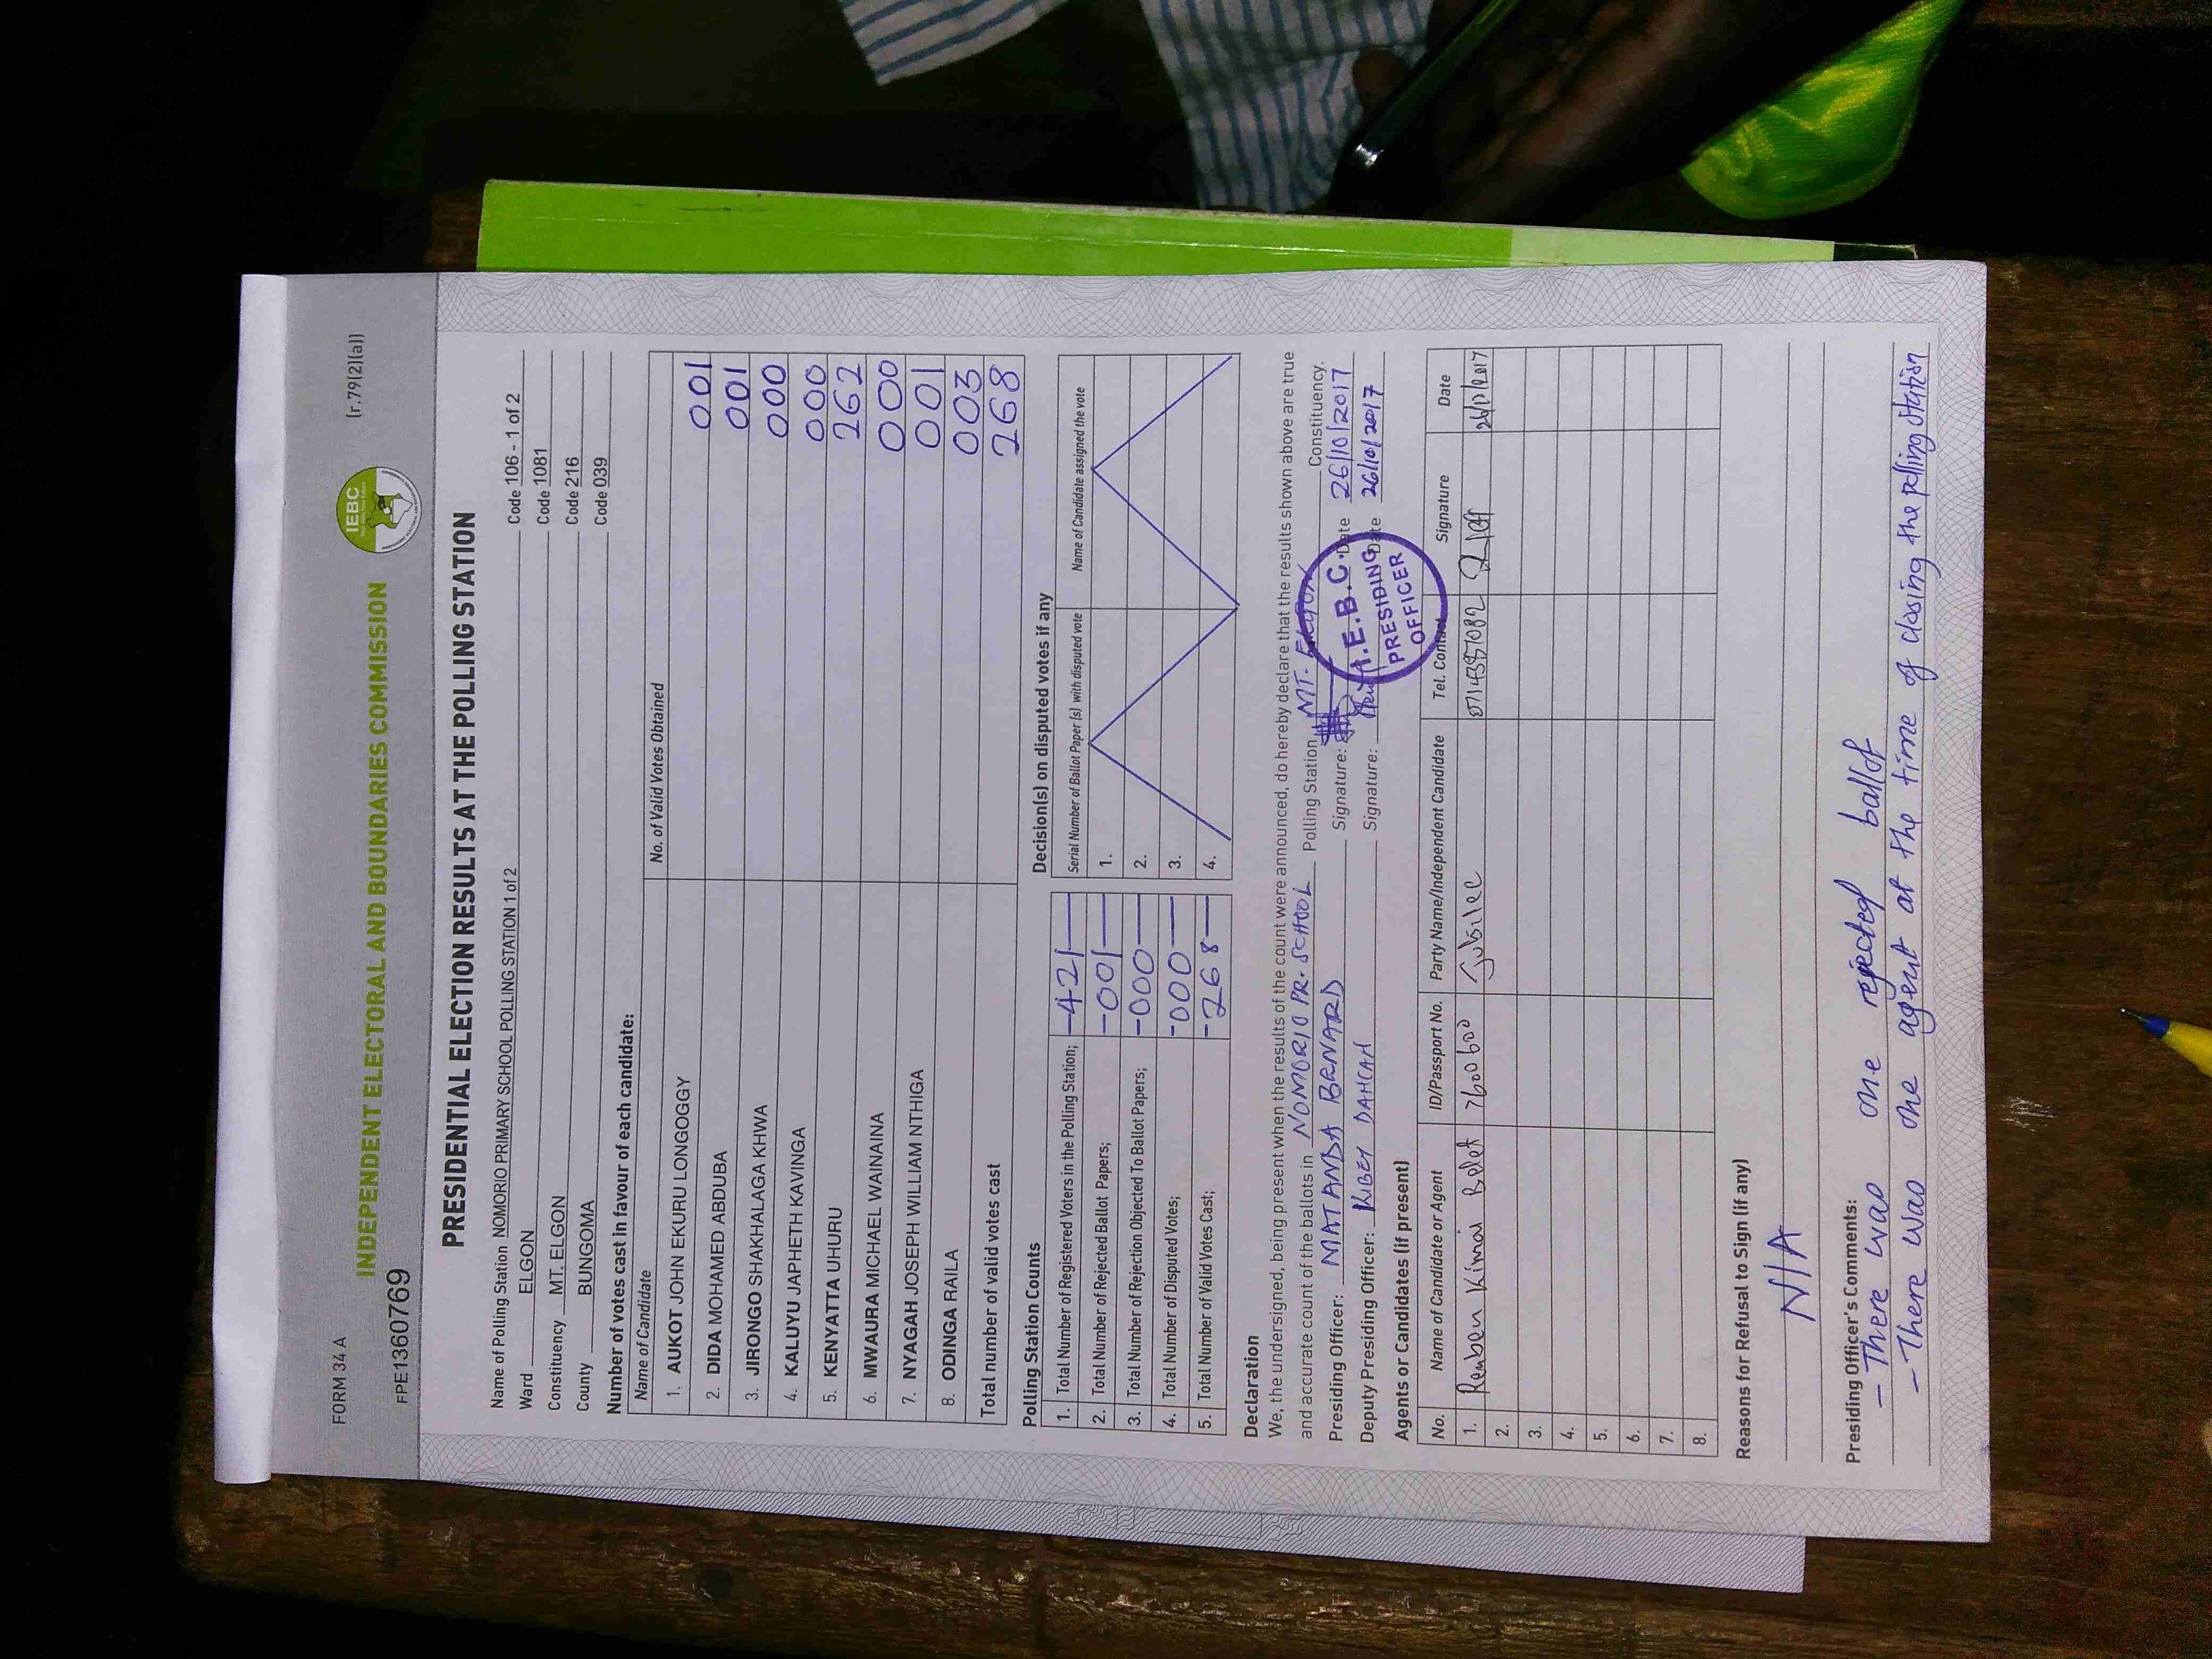 FORM 34 A
(r.79(2)(a))
IEBC
INDEPENDENT ELECTORAL AND BOUNDARIES COMMISSION
FPE1360769
PRESIDENTIAL ELECTION RESULTS AT THE POLLING STATION
Name of Polling Station NOMORIO PRIMARY SCHOOL POLLING STATION 1 of 2 Code 106 - 1 of 2
Ward ELGON Code 1081
Constituency MT. ELGON Code 216
County BUNGOMA Code 039
Number of votes cast in favour of each candidate:
Name of Candidate No. of Valid Votes Obtained
1. AUKOT JOHN EKURU LONGOGGY 001
2. DIDA MOHAMED ABDUBA 001
3. JIRONGO SHAKHALAGA KHWA 000
4. KALUYU JAPHETH KAVINGA 000
5. KENYATTA UHURU 262
6. MWAURA MICHAEL WAINAINA 000
7. NYAGAH JOSEPH WILLIAM NTHIGA 001
8. ODINGA RAILA 003
Total number of valid votes cast 268
Polling Station Counts
1. Total Number of Registered Voters in the Polling Station; -421-
2. Total Number of Rejected Ballot Papers; -001-
3. Total Number of Rejection Objected To Ballot Papers; -000-
4. Total Number of Disputed Votes; -000-
5. Total Number of Valid Votes Cast; -268-
Decision(s) on disputed votes if any
Serial Number of Ballot Paper (s) with disputed vote Name of Candidate assigned the vote
1.
2.
3.
4.
Declaration
We, the undersigned, being present when the results of the count were announced, do hereby declare that the results shown above are true
and accurate count of the ballots in NOMORIO PR. SCHOOL Polling Station MT. ELGON Constituency.
Presiding Officer: MATANDA BRNARD Signature: Date 26/10/2017
Deputy Presiding Officer: KIBEY DANCAN Signature: Date 26/10/2017
I.E.B.C.
PRESIDING
OFFICER
Agents or Candidates (if present)
No. Name of Candidate or Agent ID/Passport No. Party Name/Independent Candidate Tel. Contact Signature Date
1. Reuben Kinnai Belet 7600600 Jubilee 26/10/2017
2.
3.
4.
5.
6.
7.
8.
Reasons for Refusal to Sign (if any)
N/A
Presiding Officer's Comments:
- There was one rejected ballot
- There was one agent at the time of closing the polling station